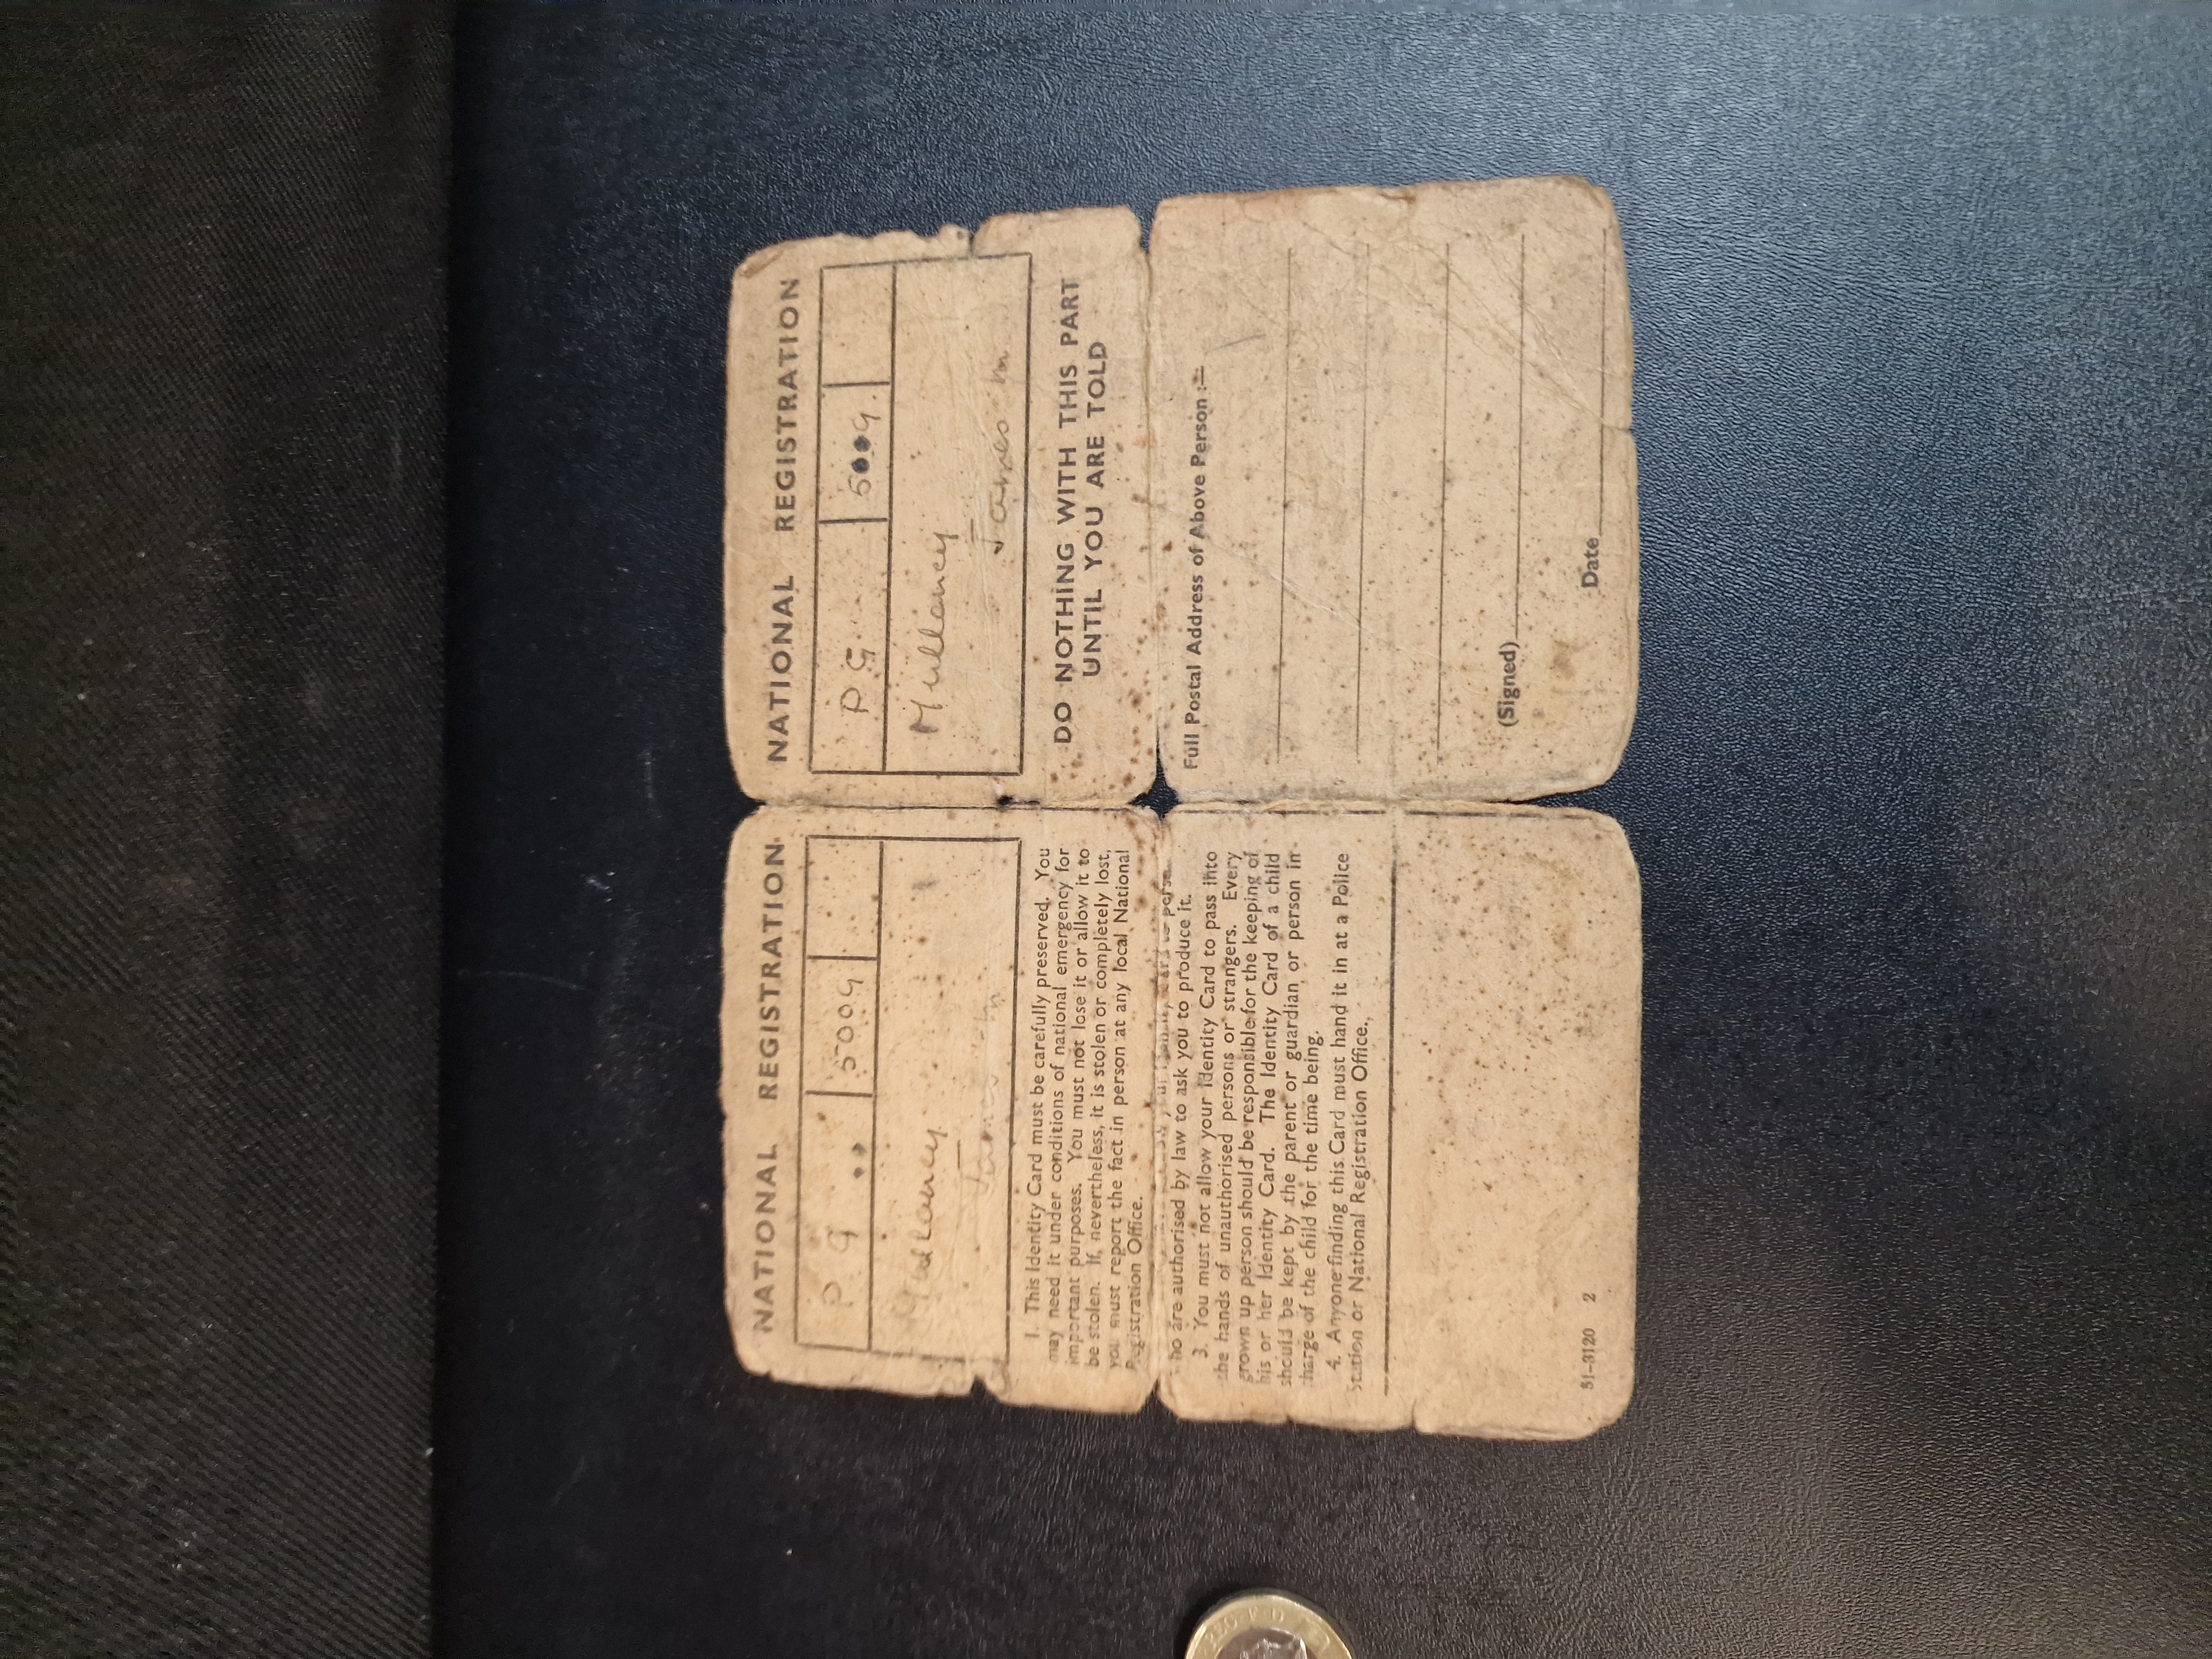 NATIONAL REGISTRATION
P 9 5009
Mullaney
James m
1. This Identity Card must be carefully preserved. You
may need it under conditions of national emergency for
important purposes. You must not lose it or allow it to
be stolen. If, nevertheless, it is stolen or completely lost,
you must report the fact in person at any local National
Registration Office.
who are authorised by law to ask you to produce it.
3. You must not allow your Identity Card to pass into
the hands of unauthorised persons or strangers. Every
grown up person should be responsible for the keeping of
his or her Identity Card. The Identity Card of a child
should be kept by the parent or guardian or person in
charge of the child for the time being.
4. Anyone finding this Card must hand it in at a Police
Station or National Registration Office.
51-3120 2
NATIONAL REGISTRATION
P G 5009
Mullaney
James m
DO NOTHING WITH THIS PART
UNTIL YOU ARE TOLD
Full Postal Address of Above Person :—
(Signed)
Date